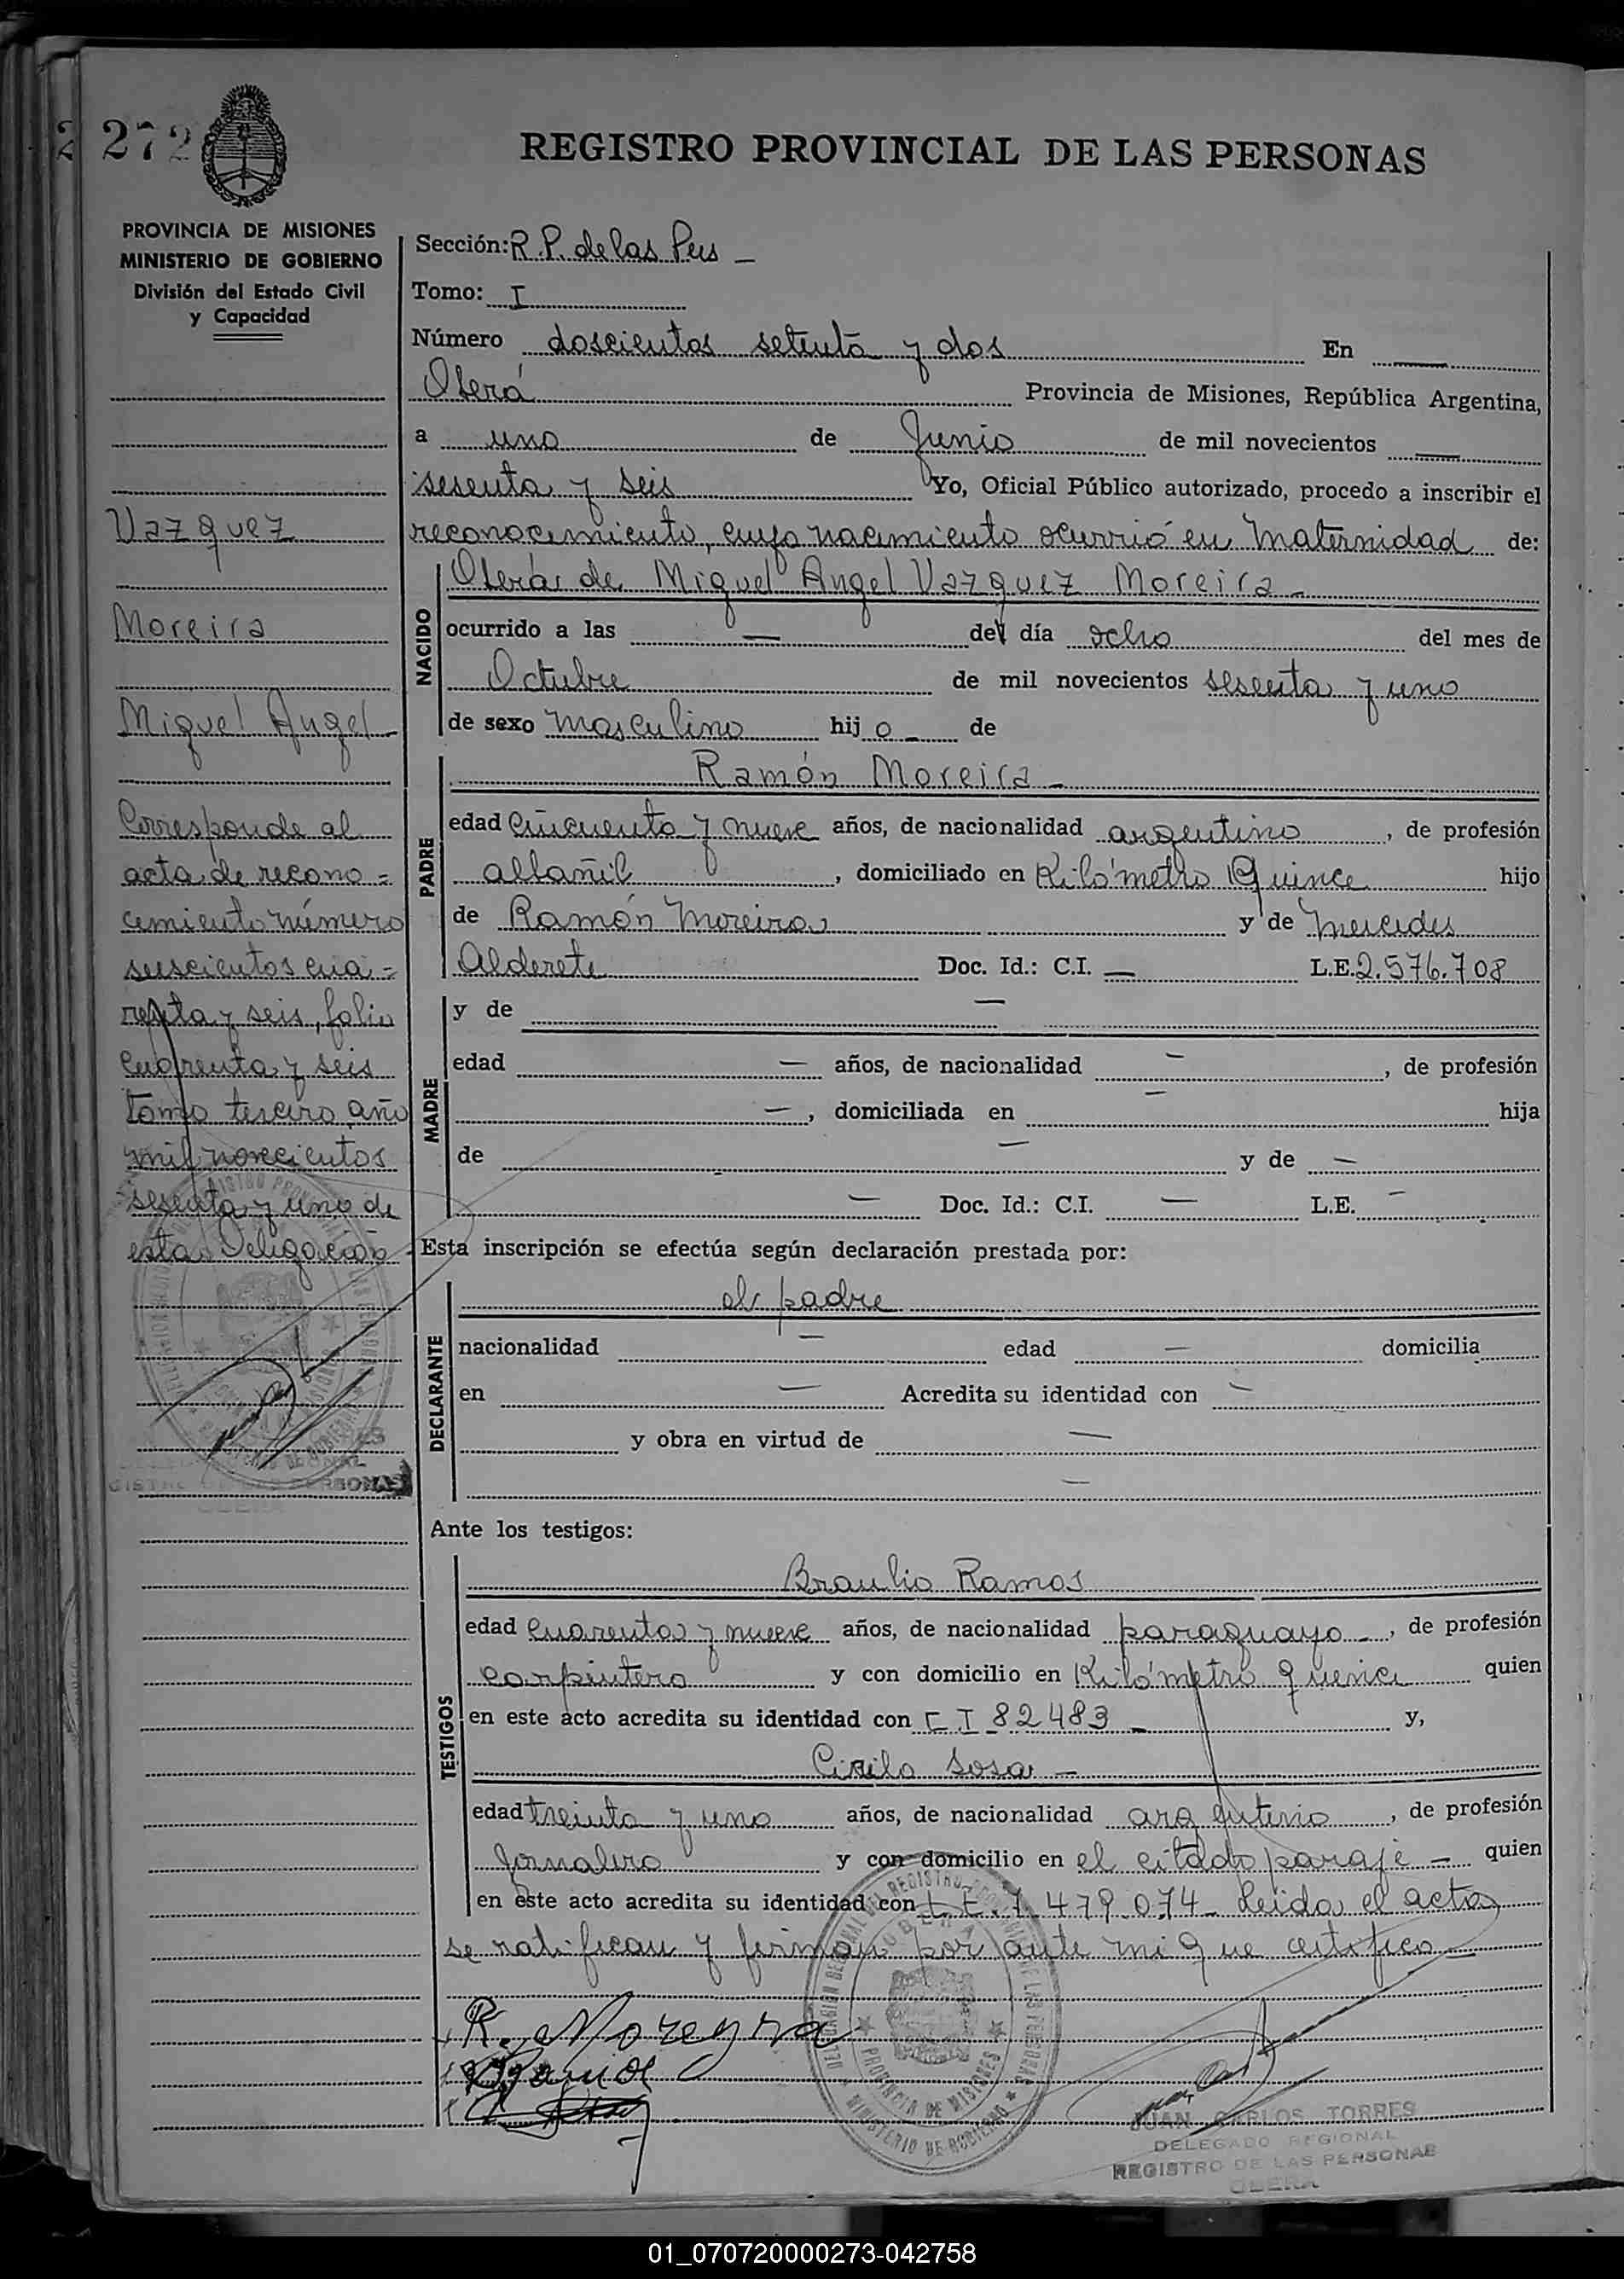 272
REGISTRO PROVINCIAL DE LAS PERSONAS
PROVINCIA DE MISIONES
MINISTERIO DE GOBIERNO
División del Estado Civil
y Capacidad
Vazquez
Moreira
Miguel Angel
Corresponde al
acta de recono=
cimiento número
seiscientos cua=
renta y seis, folio
cuarenta y seis
tomo tercero, año
mil novecientos
sesenta y uno de
esta Delegación
Sección: R.P. de las Pers —
Tomo: I
Número doscientos setenta y dos En —
Oberá Provincia de Misiones, República Argentina,
a uno de Junio de mil novecientos —
sesenta y seis Yo, Oficial Público autorizado, procedo a inscribir el
reconocimiento, cuyo nacimiento ocurrió en Maternidad de:
NACIDO
Oberá de Miguel Angel Vazquez Moreira —
ocurrido a las — del día ocho del mes de
Octubre de mil novecientos sesenta y uno
de sexo masculino hij o — de
PADRE
Ramón Moreira —
edad cincuenta y nueve años, de nacionalidad argentino, de profesión
albañil, domiciliado en Kilómetro Quince hijo
de Ramón Moreira y de Mercedes
Alderete Doc. Id.: C.I. — L.E. 2.576.708
MADRE
y de —
edad — años, de nacionalidad —, de profesión
—, domiciliada en — hija
de — y de —
— Doc. Id.: C.I. — L.E. —
Esta inscripción se efectúa según declaración prestada por:
DECLARANTE
el padre
nacionalidad — edad — domicilia
en — Acredita su identidad con —
y obra en virtud de —
—
Ante los testigos:
TESTIGOS
Braulio Ramos
edad cuarenta y nueve años, de nacionalidad paraguayo —, de profesión
carpintero y con domicilio en Kilómetro quince quien
en este acto acredita su identidad con C I 82483 — y,
Cirilo Sosa —
edad treinta y uno años, de nacionalidad argentino, de profesión
Jornalero y con domicilio en el citado paraje — quien
en este acto acredita su identidad con L.E. 7.479.074 — Leida el acta
se ratifican y firman por ante mi que certifico —
R. Moreyra
BRamos
DELEGACION REGIONAL DEL REGISTRO PROVINCIAL DE LAS PERSONAS
OBERA
PROVINCIA DE MISIONES
MINISTERIO DE GOBIERNO
JUAN CARLOS TORRES
DELEGADO REGIONAL
REGISTRO DE LAS PERSONAS
OBERA
01_070720000273-042758